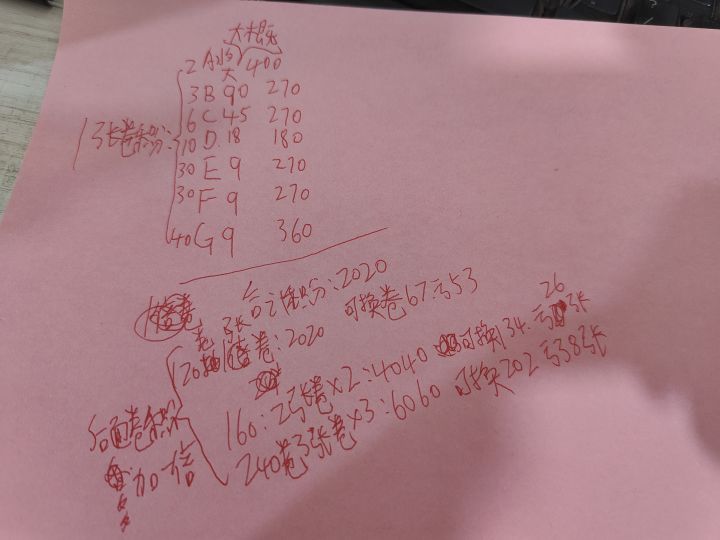 大概
2 A 大 400
3 B 90 270
6 C 45 270
10 D 18 180
30 E 9 270
30 F 9 270
40 G 9 360
1张卷积分:
合计积分:2020 可换卷67亏53
120抽1张卷:2020
160:2张卷×2:4040 可换134.亏26张
240卷3张卷×3:6060 可换202亏38张
后面卷积分
加倍